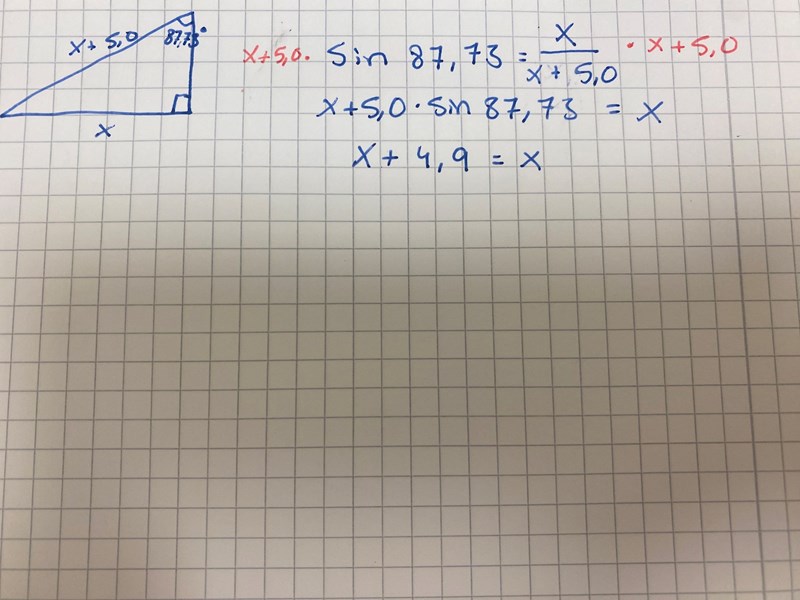 x + 5,0
87,73°
x
x+5,0 · sin 87,73 = x / x + 5,0 · x + 5,0
x + 5,0 · sin 87,73 = x
x + 4,9 = x